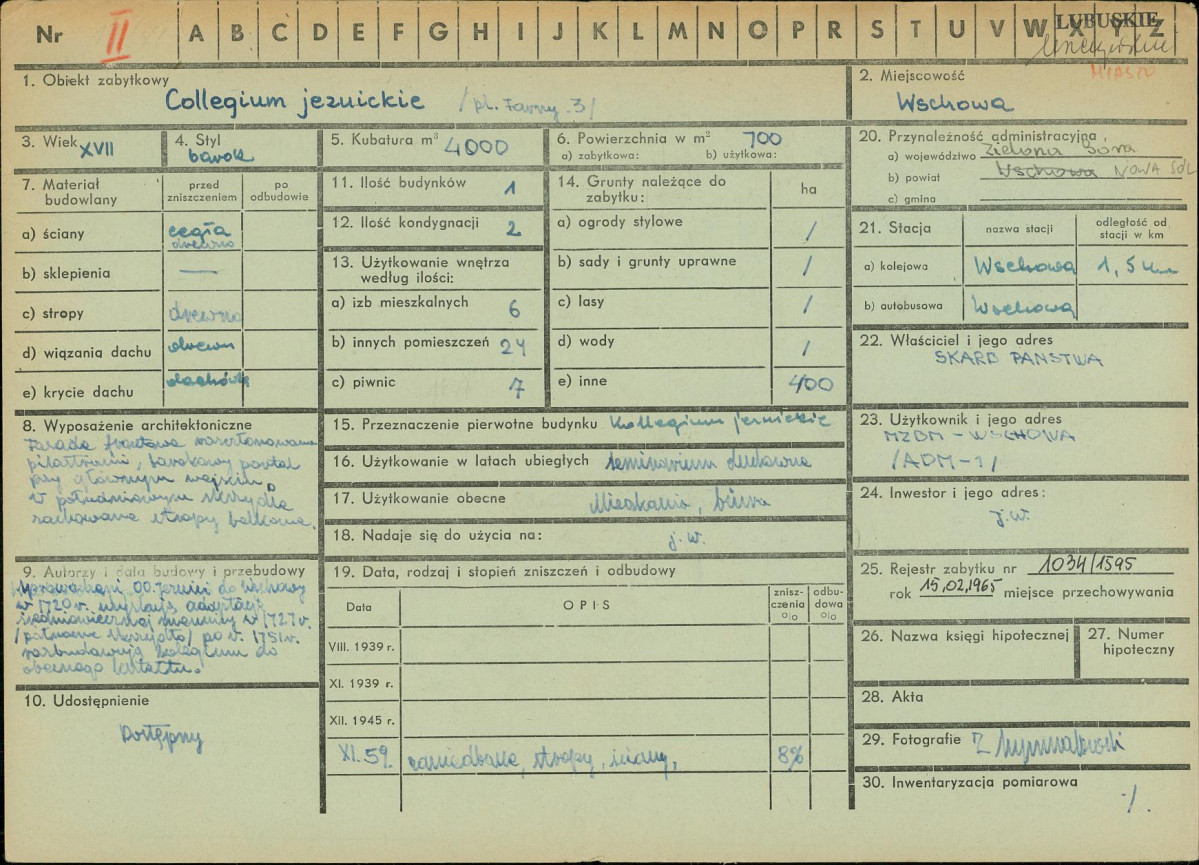 Nr II A B C D E F G H I J K L M N O P R S T U V W X Y Z
LUBUSKIE
MIASTO
1. Obiekt zabytkowy
Collegium jezuickie /pl. Farny 3/
2. Miejscowość
Wschowa
3. Wiek XVII
4. Styl barok
5. Kubatura m³ 4000
6. Powierzchnia w m² 700
a) zabytkowa: b) użytkowa:
20. Przynależność administracyjna
a) województwo Zielona Góra
b) powiat Wschowa NOWA SÓL
c) gmina
7. Materiał budowlany
przed zniszczeniem
po odbudowie
a) ściany cegła drewno
b) sklepienia —
c) stropy drewno
d) wiązania dachu drewn
e) krycie dachu dachówka
11. Ilość budynków 1
12. Ilość kondygnacji 2
13. Użytkowanie wnętrza według ilości:
a) izb mieszkalnych 6
b) innych pomieszczeń 24
c) piwnic 7
14. Grunty należące do zabytku: ha
a) ogrody stylowe /
b) sady i grunty uprawne /
c) lasy /
d) wody /
e) inne 400
21. Stacja
nazwa stacji
odległość od stacji w km
a) kolejowa Wschowa 1,5 km
b) autobusowa Wschowa
22. Właściciel i jego adres
SKARB PAŃSTWA
8. Wyposażenie architektoniczne
Fasada frontowa
pilastrami, barokowy portal
przy głównym wejściu,
w południowym skrzydle
zachowane stropy belkowe.
15. Przeznaczenie pierwotne budynku Kollegium jezuickie
16. Użytkowanie w latach ubiegłych seminarium duchowne
17. Użytkowanie obecne Mieszkania, biura
18. Nadaje się do użycia na: j.w.
23. Użytkownik i jego adres
MZBM – WSCHOWA
/ADM-1/
24. Inwestor i jego adres:
j.w.
9. Autorzy i data budowy i przebudowy
OO. Jezuici do Wschowy
w 1720 r. adaptacji
średniowiecznej w 1727 r.
/północne skrzydło/ po r. 1751 r.
rozbudowują kolegium do
obecnego kształtu.
19. Data, rodzaj i stopień zniszczeń i odbudowy
Data
OPIS
zniszczenia %
odbudowa %
VIII. 1939 r.
XI. 1939 r.
XII. 1945 r.
XI.59. zaniedbane, stropy, ściany, 8%
25. Rejestr zabytku nr 1034/1595
rok 15,02,1965 miejsce przechowywania
26. Nazwa księgi hipotecznej
27. Numer hipoteczny
28. Akta
10. Udostępnienie
Dostępny
29. Fotografie Z
30. Inwentaryzacja pomiarowa
·/.